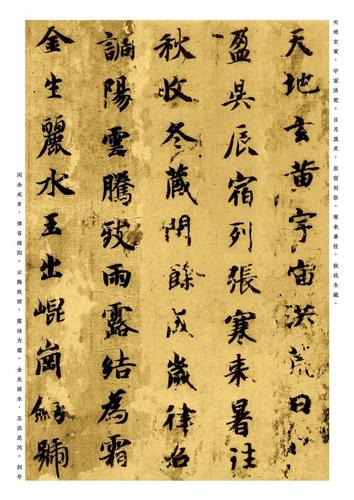 天地玄黄，宇宙洪荒。日月盈昃，辰宿列张。寒来暑往，秋收冬藏。
天地玄黃宇宙洪荒日
盈昃辰宿列張寒来暑往
秋收冬藏閏餘成歲律召
調陽雲騰致雨露結為霜
金生麗水玉出崐崗劎號
闰余成岁，律召调阳。云腾致雨，露结为霜。金生丽水，玉出昆冈。剑号